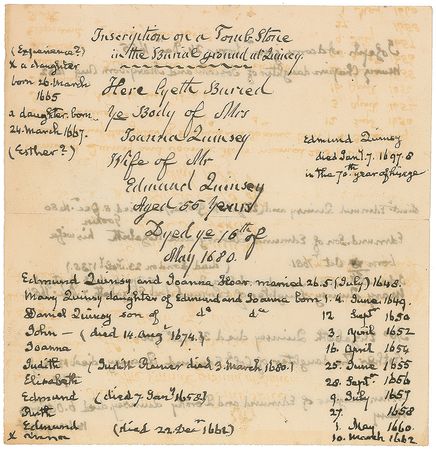 Inscription on a Tomb Stone
in the Burial ground at Quincy.
(Experience?)
x a daughter
born 26. March
1665
a daughter born
24. March 1667.
(Esther?)
Here Lyeth Buried
ye Body of Mrs
Joanna Quinsey
Wife of Mr
Edmund Quinsey
Aged 55 Years
Dyed ye 16th of
May 1680.
Edmund Quincy
died Jany. 7. 1697.8
in the 70th year of his age
Edmund Quinsy and Joanna Hoar. married 26.5 (July) 1648.
Mary Quinsy daughter of Edmund and Joanna born 1.4. June. 1649.
Daniel Quincy son of do do 12 Septr 1650
John — (died 14. Augt 1674.) 3. April 1652
Joanna 16. April 1654
Judith (Judith Rainer died 3. March 1680.) 25. June 1655
Elizabeth 28. Septr 1656
Edmund (died 7. Jany 1658) 9. July 1657
Ruth 27. 1658
Edmund (died 22. Decr 1662) 1. May 1660.
x 10. March 1662